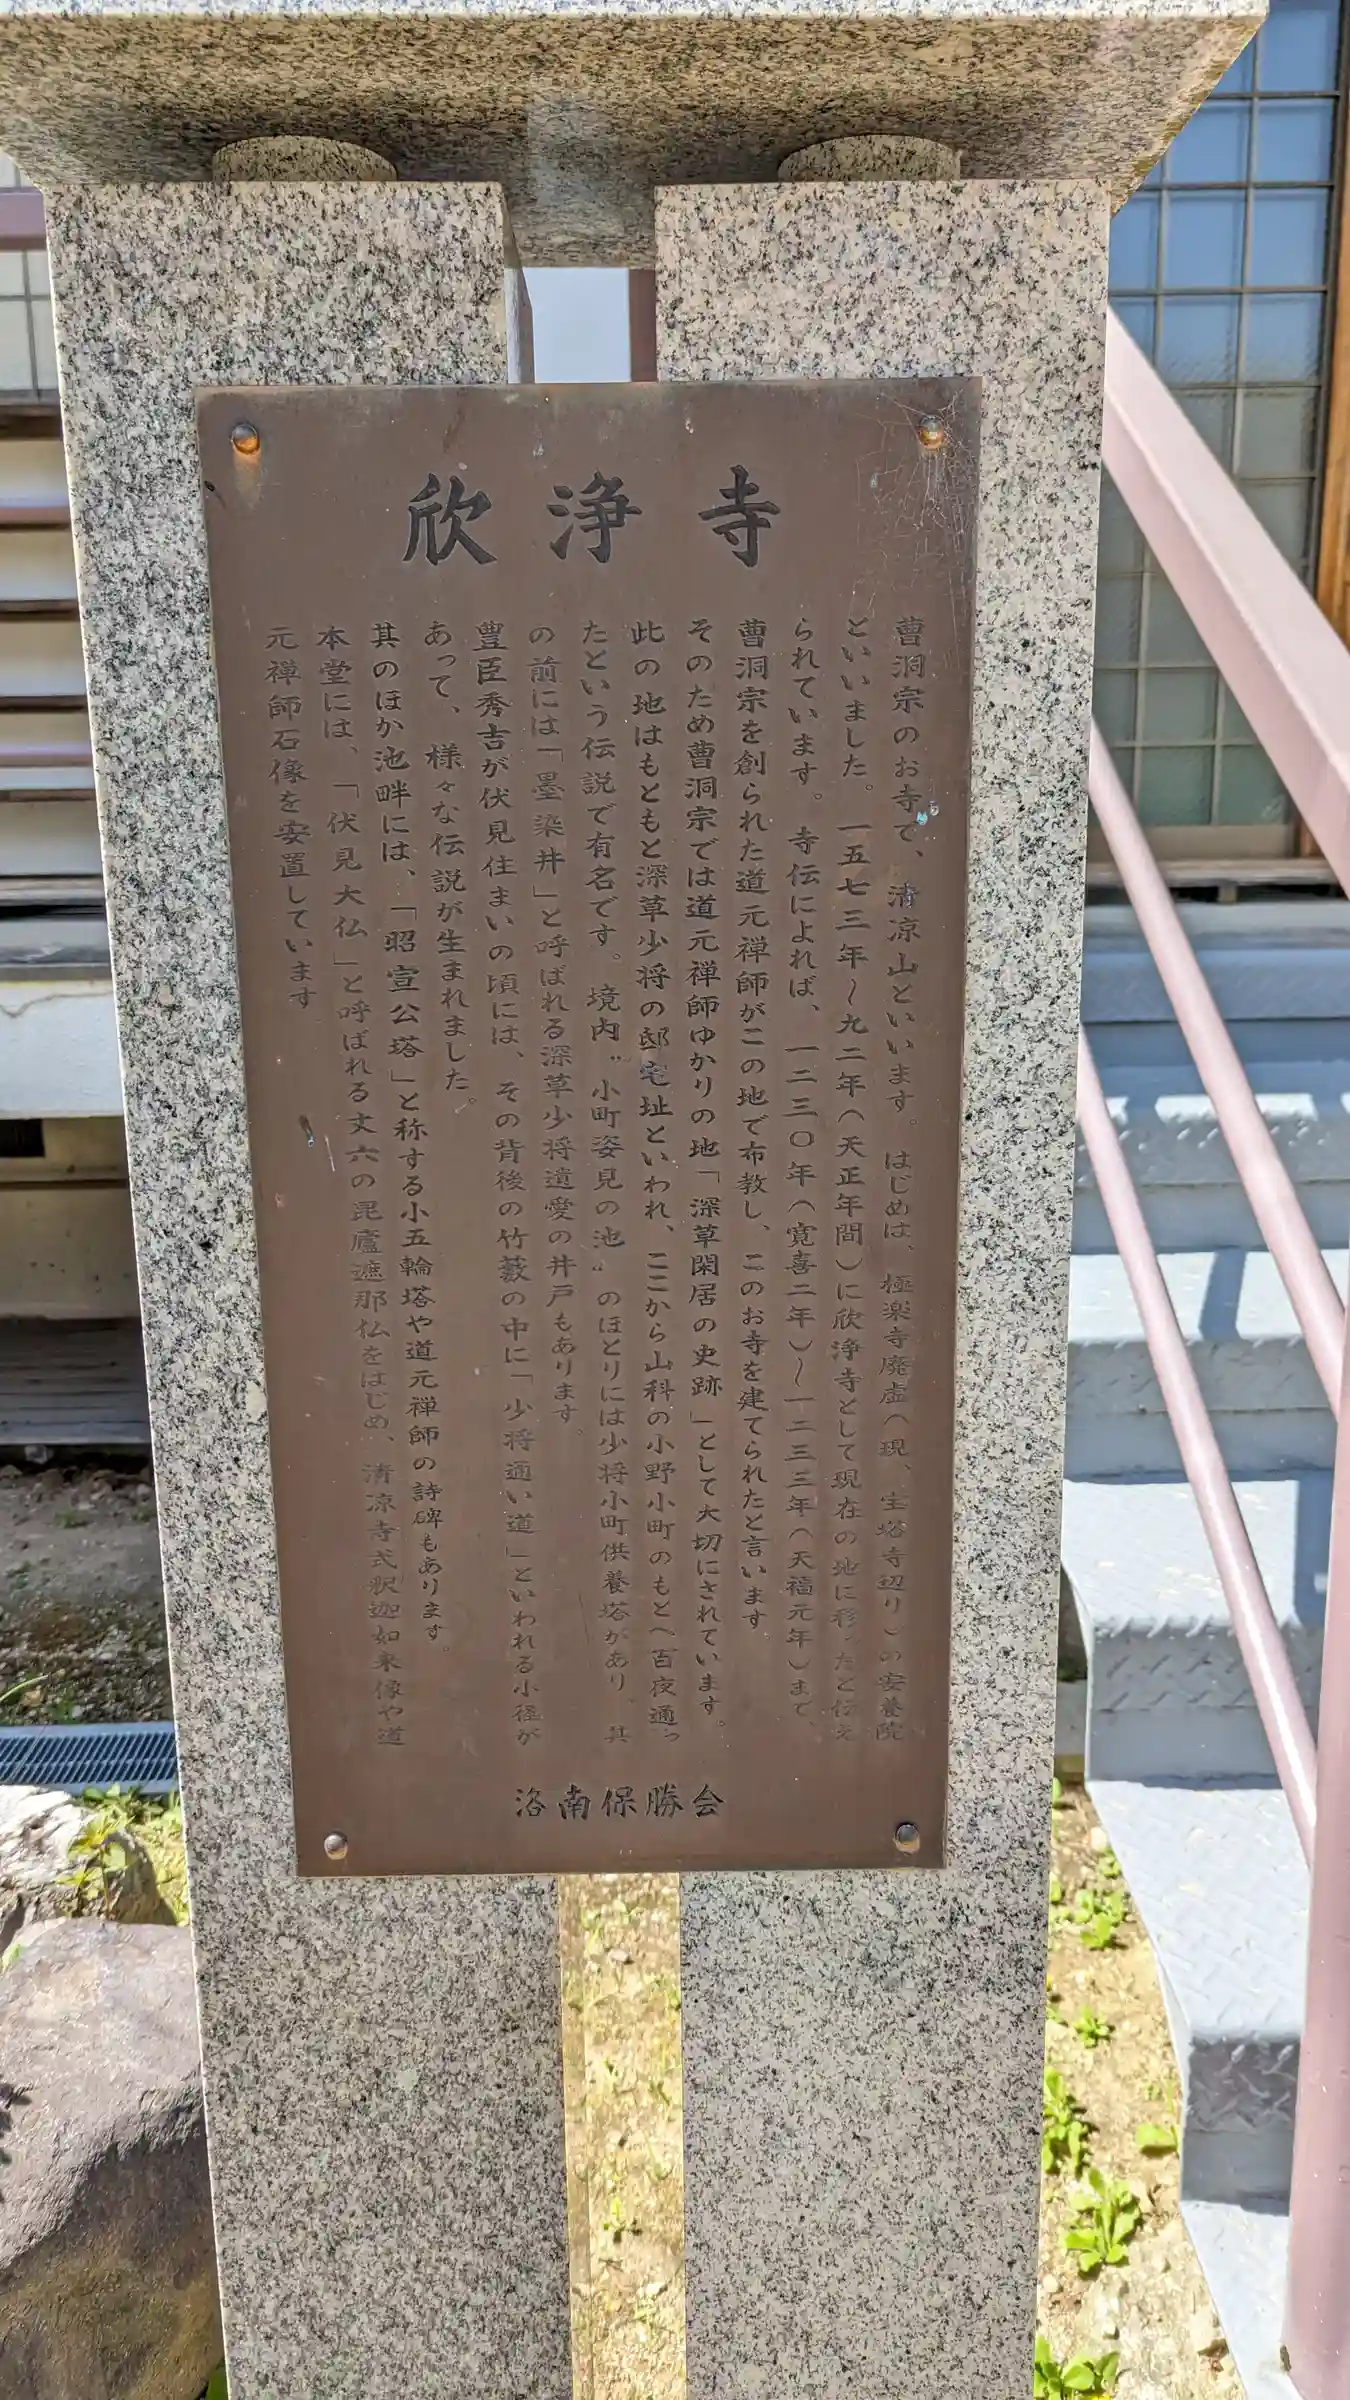 欣浄寺
曹洞宗のお寺で、清凉山といいます。はじめは、極楽寺廃虚(現、宝塔寺辺り)の安養院
といいました。一五七三年~九二年(天正年間)に欣浄寺として現在の地に移ったと伝え
られています。寺伝によれば、一二三〇年(寛喜二年)~一二三三年(天福元年)まで、
曹洞宗を創られた道元禅師がこの地で布教し、このお寺を建てられたと言います
そのため曹洞宗では道元禅師ゆかりの地「深草閑居の史跡」として大切にされています。
此の地はもともと深草少将の邸宅址といわれ、ここから山科の小野小町のもとへ百夜通っ
たという伝説で有名です。境内〝小町姿見の池〟のほとりには少将小町供養塔があり、其
の前には「墨染井」と呼ばれる深草少将遺愛の井戸もあります。
豊臣秀吉が伏見住まいの頃には、その背後の竹藪の中に「少将通い道」といわれる小径が
あって、様々な伝説が生まれました。
其のほか池畔には、「昭宣公塔」と称する小五輪塔や道元禅師の詩碑もあります。
本堂には、「伏見大仏」と呼ばれる丈六の毘廬遮那仏をはじめ、清凉寺式釈迦如来像や道
元禅師石像を安置しています
洛南保勝会